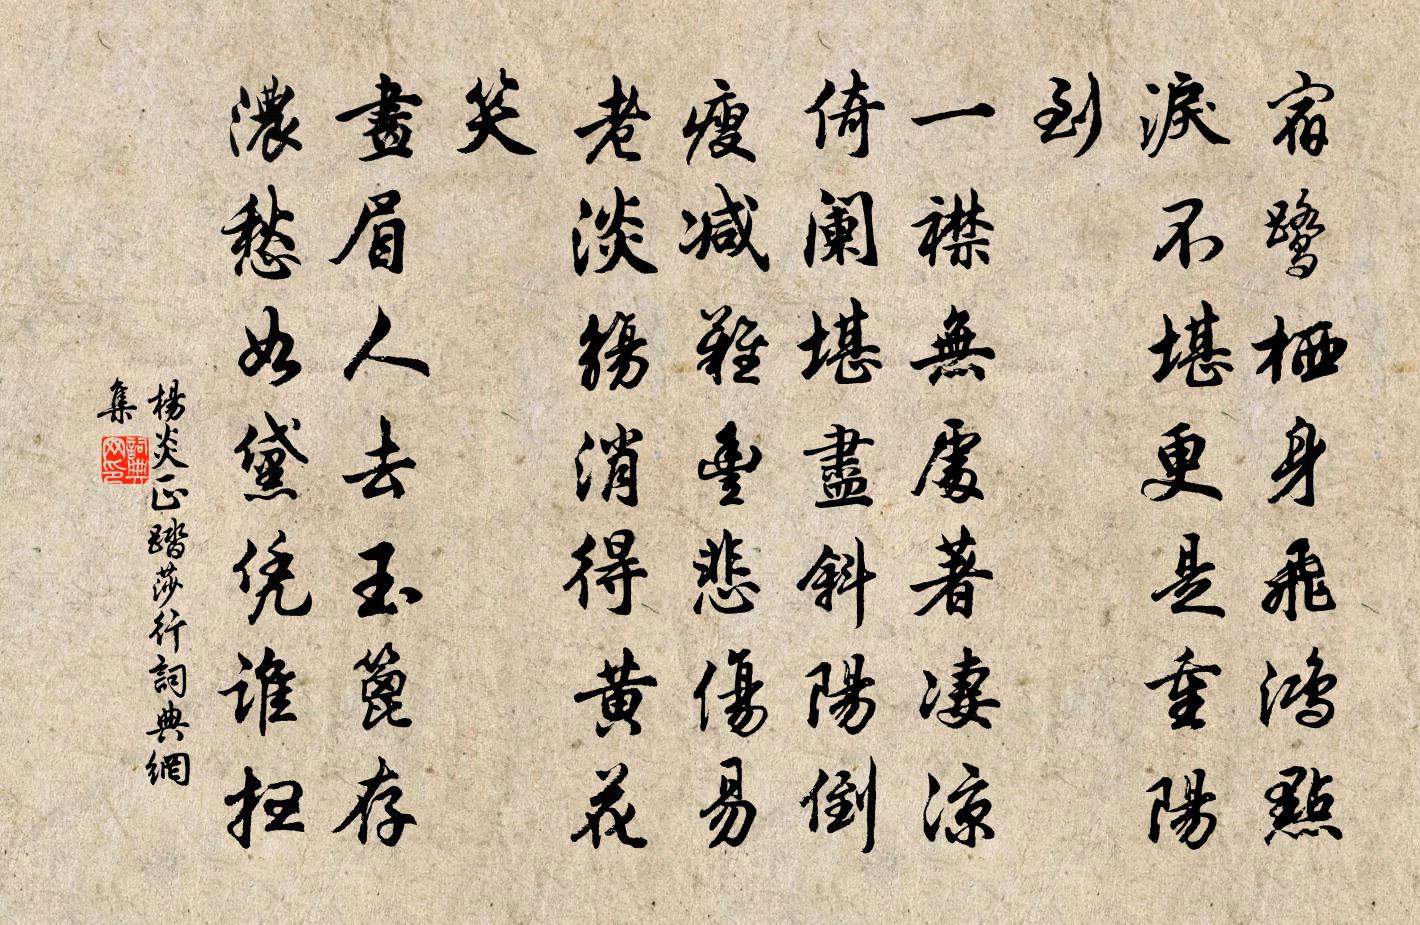 宿鷺栖身飛鴻點
淚不堪更是重陽
到
一襟無處著淒涼
倚闌堪盡斜陽倒
瘦減難豐悲傷易
老淡觴消得黃花
笑
畫眉人去玉篦存
濃愁如黛凭誰扫
楊炎正踏莎行詞典網
集
詞典
网印